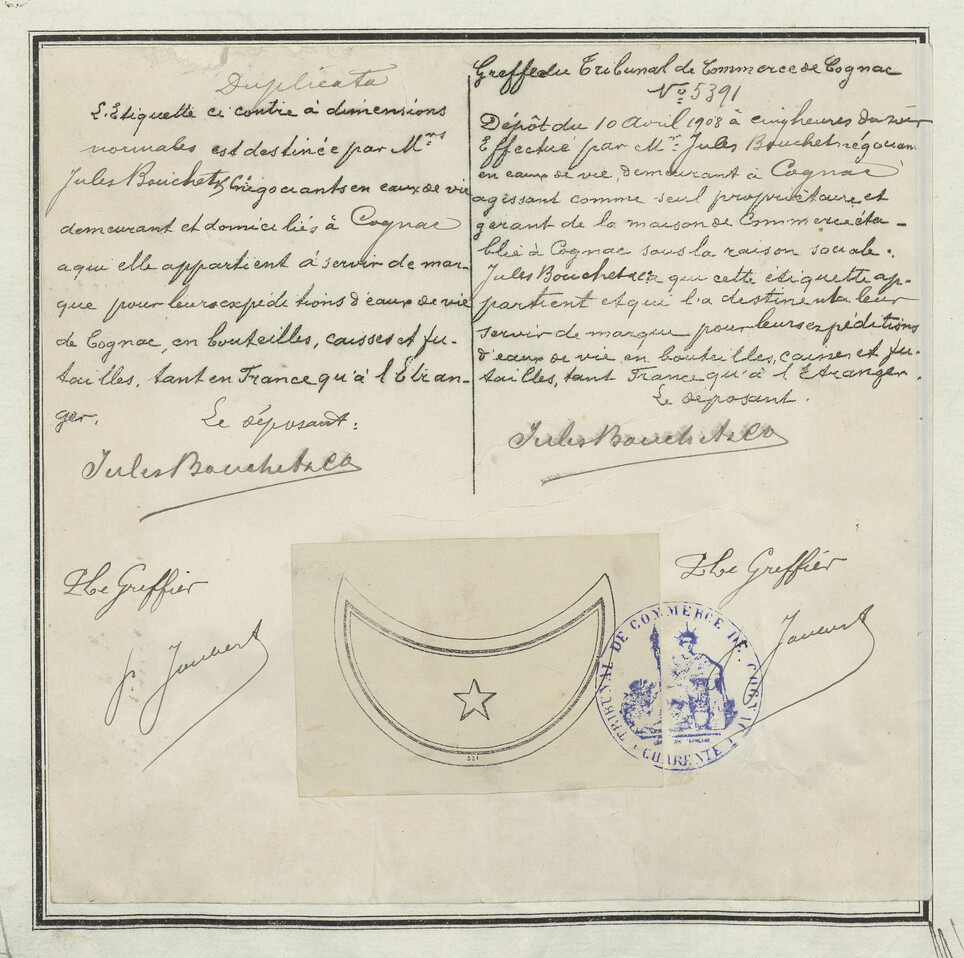 Duplicata
L'Etiquette ci contre à dimensions
normales est destinée par Mrs
Jules Bouchet & Cie négociants en eaux de vie
demeurant et domiciliés à Cognac
a qui elle appartient à servir de mar-
que pour leurs expéditions d'eaux de vie
de Cognac, en bouteilles, caisses et fu-
tailles, tant en France qu'à l'Etran-
ger.
Le déposant:
Jules Bouchet & Co
Le Greffier
Joubert
Greffe du Tribunal de Commerce de Cognac
No 5391
Dépôt du 10 Avril 1908 à cinq heures du soir
Effectué par Mr. Jules Bouchet négociant
en eaux de vie, demeurant à Cognac
agissant comme seul propriétaire et
gérant de la maison de Commerce éta-
blie à Cognac sous la raison sociale.
Jules Bouchet & Cie a qui cette étiquette ap-
partient et qui l'a destinent a leur
servir de marque pour leurs expéditions
d'eaux de vie, en bouteilles, caisses et fu-
tailles, tant France qu'à l'Etranger.
Le déposant.
Jules Bouchet & Co
Le Greffier
Joubert
531
TRIBUNAL DE COMMERCE DE COGNAC
CHARENTE